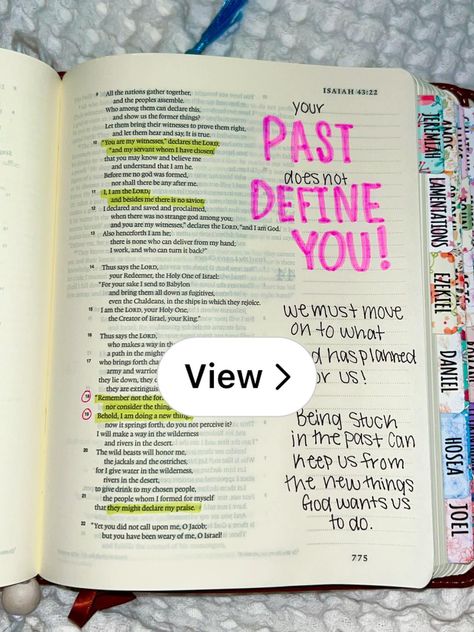 ISAIAH 43:22
9 All the nations gather together,
and the peoples assemble.
Who among them can declare this,
and show us the former things?
Let them bring their witnesses to prove them right,
and let them hear and say, It is true.
10 "You are my witnesses," declares the LORD,
"and my servant whom I have chosen,
that you may know and believe me
and understand that I am he.
Before me no god was formed,
nor shall there be any after me.
11 I, I am the LORD,
and besides me there is no savior.
12 I declared and saved and proclaimed,
when there was no strange god among you;
and you are my witnesses," declares the LORD, "and I am God.
13 Also henceforth I am he;
there is none who can deliver from my hand;
I work, and who can turn it back?"
14 Thus says the LORD,
your Redeemer, the Holy One of Israel:
"For your sake I send to Babylon
and bring them all down as fugitives,
even the Chaldeans, in the ships in which they rejoice.
15 I am the LORD, your Holy One,
the Creator of Israel, your King."
16 Thus says the LORD,
who makes a way in the
a path in the mighty
17 who brings forth
army and warrior
they lie down, they
they are extinguis
18 "Remember not the for
nor consider the things
19 Behold, I am doing a new thing
now it springs forth, do you not perceive it?
I will make a way in the wilderness
and rivers in the desert.
20 The wild beasts will honor me,
the jackals and the ostriches,
for I give water in the wilderness,
rivers in the desert,
to give drink to my chosen people,
21 the people whom I formed for myself
that they might declare my praise.
22 "Yet you did not call upon me, O Jacob;
but you have been weary of me, O Israel!
your
PAST
does not
DEFINE
YOU!
we must move
on to what
d has planned
or us!
Being stuck
in the past can
keep us from
the new things
God wants us
to do.
775
View >
JEREMIAH
LAMENTATIONS
EZEKIEL
DANIEL
HOSEA
JOEL